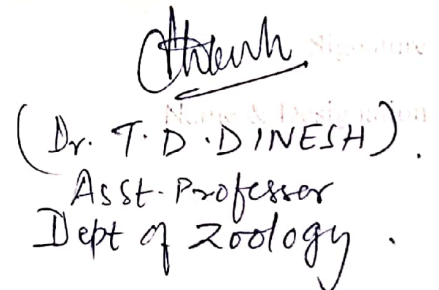 Signature
Name & Designation
(Dr. T. D. DINESH).
Asst. Professor
Dept of Zoology.